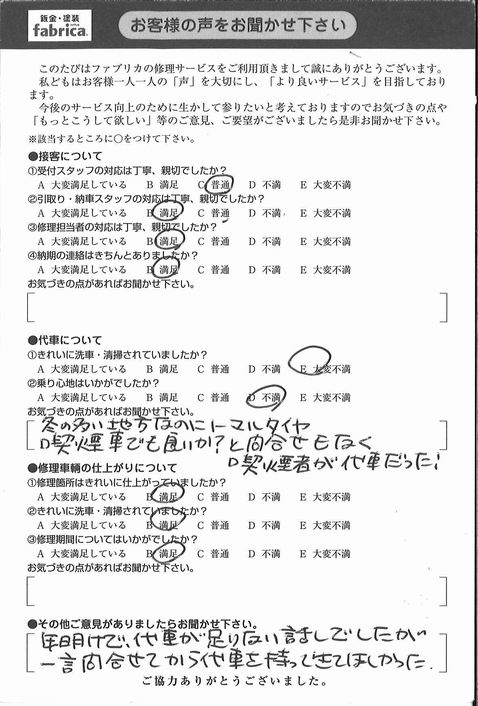 鈑金・塗装
fabrica.
お客様の声をお聞かせ下さい
このたびはファブリカの修理サービスをご利用頂きまして誠にありがとうございます。
私どもはお客様一人一人の「声」を大切にし、「より良いサービス」を目指しており
ます。
今後のサービス向上のために生かして参りたいと考えておりますのでお気づきの点や
「もっとこうして欲しい」等のご意見、ご要望がございましたら是非お聞かせ下さい。
※該当するところに○をつけて下さい。
●接客について
①受付スタッフの対応は丁寧、親切でしたか？
A 大変満足している B 満足 C 普通 D 不満 E 大変不満
②引取り・納車スタッフの対応は丁寧、親切でしたか？
A 大変満足している B 満足 C 普通 D 不満 E 大変不満
③修理担当者の対応は丁寧、親切でしたか？
A 大変満足している B 満足 C 普通 D 不満 E 大変不満
④納期の連絡はきちんとありましたか？
A 大変満足している B 満足 C 普通 D 不満 E 大変不満
お気づきの点があればお聞かせ下さい。
●代車について
①きれいに洗車・清掃されていましたか？
A 大変満足している B 満足 C 普通 D 不満 E 大変不満
②乗り心地はいかがでしたか？
A 大変満足している B 満足 C 普通 D 不満 E 大変不満
お気づきの点があればお聞かせ下さい。
冬の多い地方なのにノーマルタイヤ
喫煙車でも良いか？と問合せもなく
喫煙者が代車だった！
●修理車輌の仕上がりについて
①修理箇所はきれいに仕上がっていましたか？
A 大変満足している B 満足 C 普通 D 不満 E 大変不満
②きれいに洗車・清掃されていましたか？
A 大変満足している B 満足 C 普通 D 不満 E 大変不満
③修理期間についてはいかがでしたか？
A 大変満足している B 満足 C 普通 D 不満 E 大変不満
お気づきの点があればお聞かせ下さい。
●その他ご意見がありましたらお聞かせ下さい。
年明けで、代車が足りない話しでしたが
一言問合せてから代車を持ってきてほしかった.
ご協力ありがとうございました。